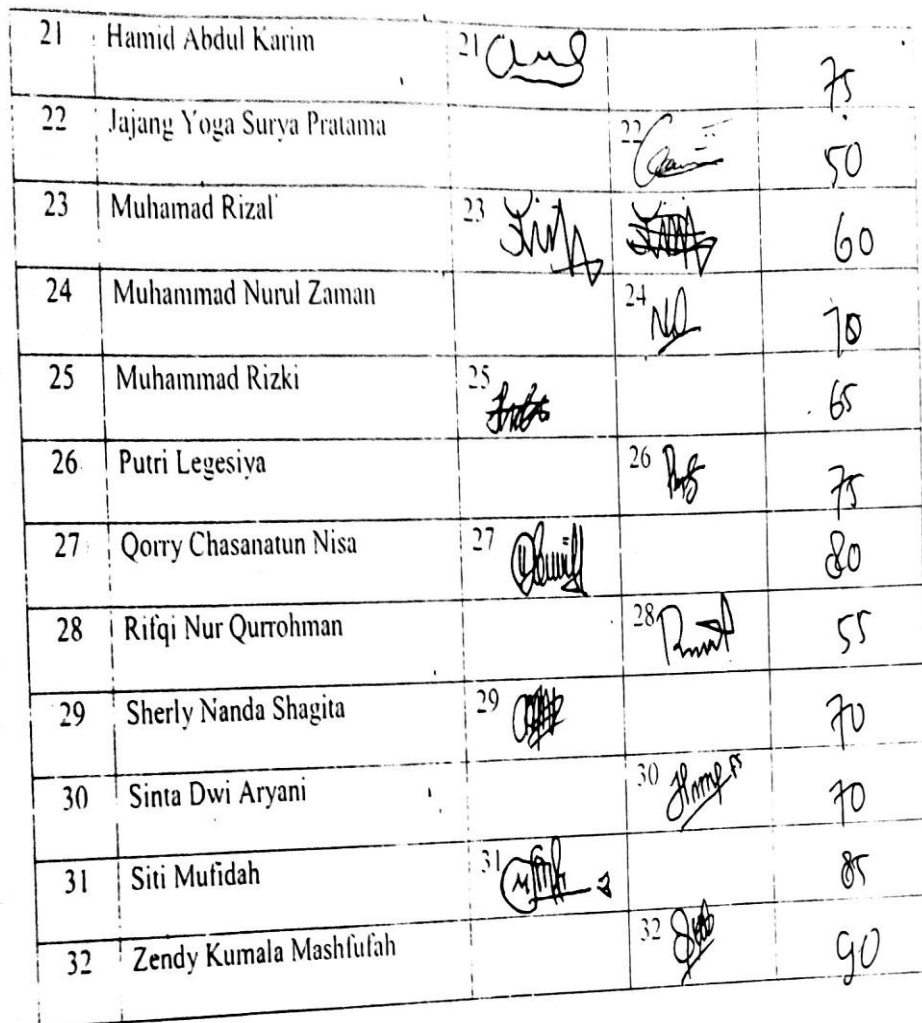 21 Hamid Abdul Karim 21 75
22 Jajang Yoga Surya Pratama 22 50
23 Muhamad Rizal 23 60
24 Muhammad Nurul Zaman 24 70
25 Muhammad Rizki 25 65
26 Putri Legesiya 26 75
27 Qorry Chasanatun Nisa 27 80
28 Rifqi Nur Qurrohman 28 55
29 Sherly Nanda Shagita 29 70
30 Sinta Dwi Aryani 30 70
31 Siti Mufidah 31 85
32 Zendy Kumala Mashfufah 32 90